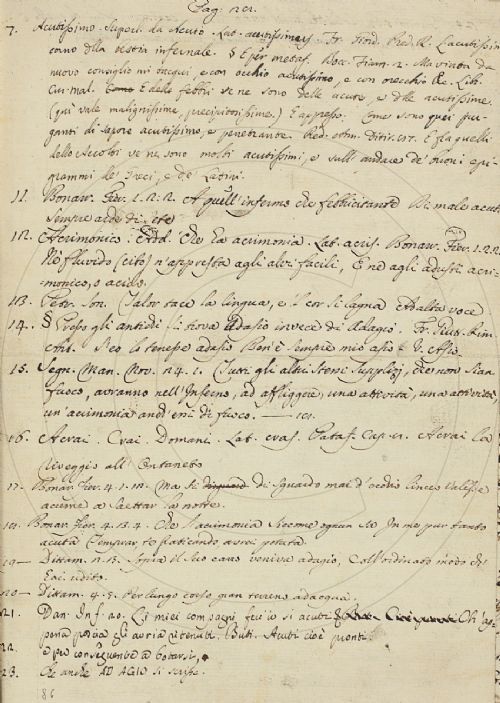 Pag. 201.
7. Acutissimo. Superl. da Acuto. Lat. acutissimus. Fr. Giord. Pred. R. L'acutissimo
corno della bestia infernale. § E per metaf. Bocc. Fiam. 2. Ma vinta da
nuovo consiglio mi tacqui, e con occhio acutissimo, e con orecchio &c. Lib.
Cur. mal. E delle febbri ve ne sono delle acute, e delle acutissime.
(qui vale malignissime, precipitosissime.) E appresso. Come sono quei pur-
ganti di sapore acutissimo, e penetrante. Red. Ditir. E fra quelli
dello ve ne sono molti acutissimi, e sull' andare de' buoni epi-
grammi de' Greci, e de' Latini.
11. Bonar. Fier. 1. 2. 2. A quell' infermo che febbricitante Di male acuto
sempre arde di sete
12. Acrimonico. Add. Che ha acrimonia. Lat. acris. Bonarr. Fier. 1. 2. 2.
Nè fluvido (cibo) s'appresta agli alvi facili, E nè agli adusti acri-
monico, o acido.
113. Petr. Son. Talor tace la lingua, e 'l cor si lagna Ad alta voce
14. § Presso gli antichi si trova adasio invece di Adagio. Fr. Giutt. Rim.
Ant. S'eo lo tenesse adasio Ben'è sempre mio asio e V. Asio.
15. Segn. Man. Nov. 24. 1. Tutti gli altri stessi Supplizj, che non sian
fuoco, avranno nell' Inferno, ad affliggere, una attività, una attività
un' acrimonia anch' essi di fuoco. — 101.
16. Acrai. Crai. Domani. Lat. cras. Pataf. Cap. 11. Acrai la
riveggio all' Ontaneto
17. Bonar. Fier. 4. 1. 10. Ma si di sguardo mai d'occhio linceo Valesse
acume a saettar la notte.
Bonar. Fier. 4. 13. 4. Che l'acrimonia siccome ognun sa In me pur tanto
acuta temprar, to faticando assai potuto.
19 — Dittam. 2. 13. Sopra il suo caro veniva adagio, Coll' ordinato modo che
hai udito.
20 — Dittam. 4. 5. Per lungo corso gran terreno adacqua.
21. Dan. Inf. 26. Li miei compagni fec'io sì acuti Ch' ap-
pena poscia gli avria ritenuti. Buti. Acuti cioè pronti.
22. e per conseguente a botarsi,
23. Che anche AD AGIO si scrisse.
186